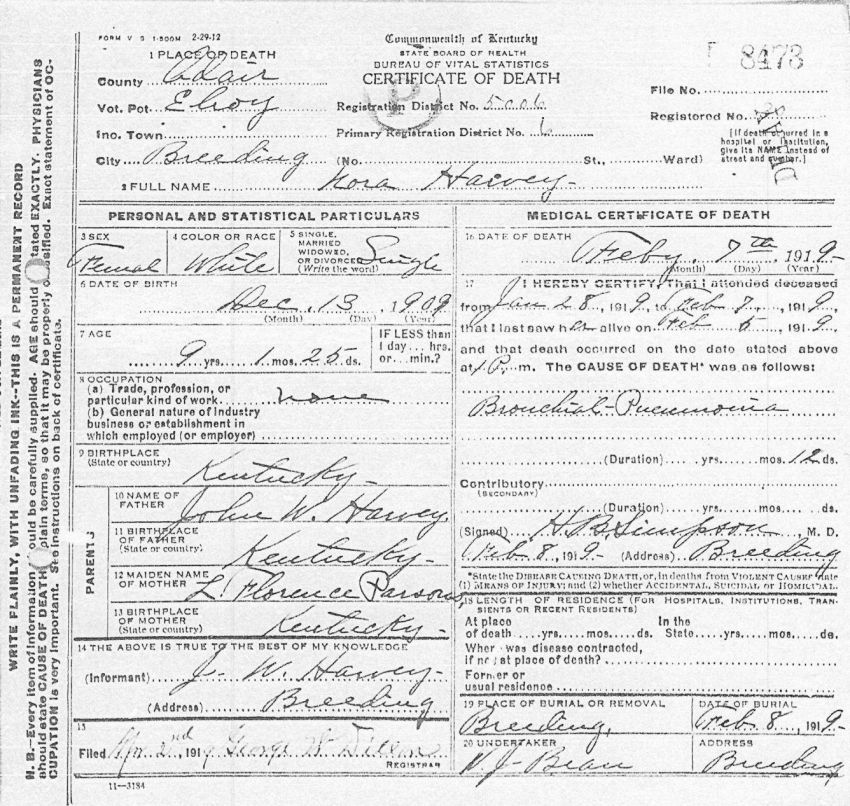 FORM V S 1-500M 2-29-12
Commonwealth of Kentucky
STATE BOARD OF HEALTH
BUREAU OF VITAL STATISTICS
CERTIFICATE OF DEATH
8473
1 PLACE OF DEATH
County Adair
Vot. Pct. Elroy
Inc. Town
City Breeding (No. St., Ward)
Registration District No. 5006
Primary Registration District No. 6
File No.
Registered No.
[If death occurred in a
hospital or institution,
give its NAME instead of
street and number.]
2 FULL NAME Nora Harvey
PERSONAL AND STATISTICAL PARTICULARS
3 SEX
Femal
4 COLOR OR RACE
White
5 SINGLE,
MARRIED
WIDOWED,
OR DIVORCED
(Write the word)
Single
6 DATE OF BIRTH
Dec. 13, 1909
(Month) (Day) (Year)
7 AGE
9 yrs. 1 mos. 25 ds.
IF LESS than
1 day... hrs.
or... min.?
8 OCCUPATION
(a) Trade, profession, or
particular kind of work none
(b) General nature of Industry
business or establishment in
which employed (or employer)
9 BIRTHPLACE
(State or country)
Kentucky
PARENTS
10 NAME OF
FATHER
John W. Harvey
11 BIRTHPLACE
OF FATHER
(State or country)
Kentucky
12 MAIDEN NAME
OF MOTHER
L. Florence Parsons
13 BIRTHPLACE
OF MOTHER
(State or country)
Kentucky
14 THE ABOVE IS TRUE TO THE BEST OF MY KNOWLEDGE
(Informant) J. W. Harvey
(Address) Breeding
15
Filed 191 George W
REGISTRAR
11—3184
MEDICAL CERTIFICATE OF DEATH
16 DATE OF DEATH
Feby. 7th 1919
(Month) (Day) (Year)
17 I HEREBY CERTIFY, That I attended deceased
from Jan 28, 1919, to Feb 7, 1919,
that I last saw her alive on Feb 5, 1919
and that death occurred on the date stated above
at 1 P. m. The CAUSE OF DEATH* was as follows:
Bronchial-Pneumonia
(Duration) yrs. mos. 12 ds.
Contributory
(SECONDARY)
(Duration) yrs. mos. ds.
(Signed) H. B. Simpson, M. D.
Feb 8, 1919 (Address) Breeding
*State the DISEASE CAUSING DEATH, or, in deaths from VIOLENT CAUSES state
(1) MEANS OF INJURY; and (2) whether ACCIDENTAL, SUICIDAL or HOMICIDAL.
18 LENGTH OF RESIDENCE (FOR HOSPITALS, INSTITUTIONS, TRAN-
SIENTS OR RECENT RESIDENTS)
At place In the
of death yrs. mos. ds. State yrs. mos. ds.
Where was disease contracted,
if not at place of death?
Former or
usual residence
19 PLACE OF BURIAL OR REMOVAL
Breeding,
DATE OF BURIAL
Feb. 8, 1919
20 UNDERTAKER
ADDRESS
Breeding
WRITE PLAINLY, WITH UNFADING INK--THIS IS A PERMANENT RECORD
N. B.—Every item of information should be carefully supplied. AGE should be stated EXACTLY. PHYSICIANS
should state CAUSE OF DEATH in plain terms, so that it may be properly classified. Exact statement of OC-
CUPATION is very important. See instructions on back of certificate.